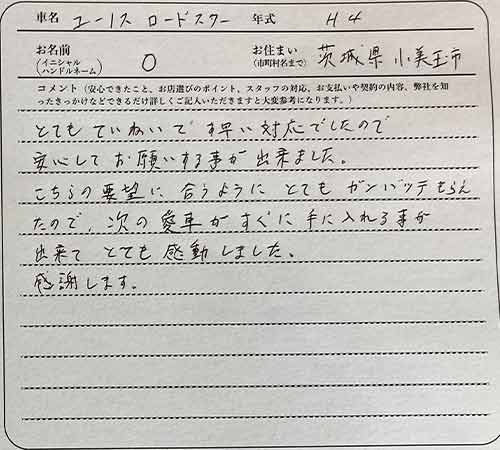 車名 ユーノス ロードスター 年式 H4
お名前 (イニシャル ハンドルネーム) O お住まい (市町村名まで) 茨城県 小美玉市
コメント（安心できたこと、お店選びのポイント、スタッフの対応、お支払いや契約の内容、弊社を知
ったきっかけなどできるだけ詳しくご記入いただきますと大変参考になります。）
とてもていねいで す早い対応でしたので
安心してお願いする事が出来ました。
こちらの要望に合うように とても ガンバッテもらえ
たので、次の愛車がすぐに手に入れる事が
出来て とても感動しました。
感謝します。